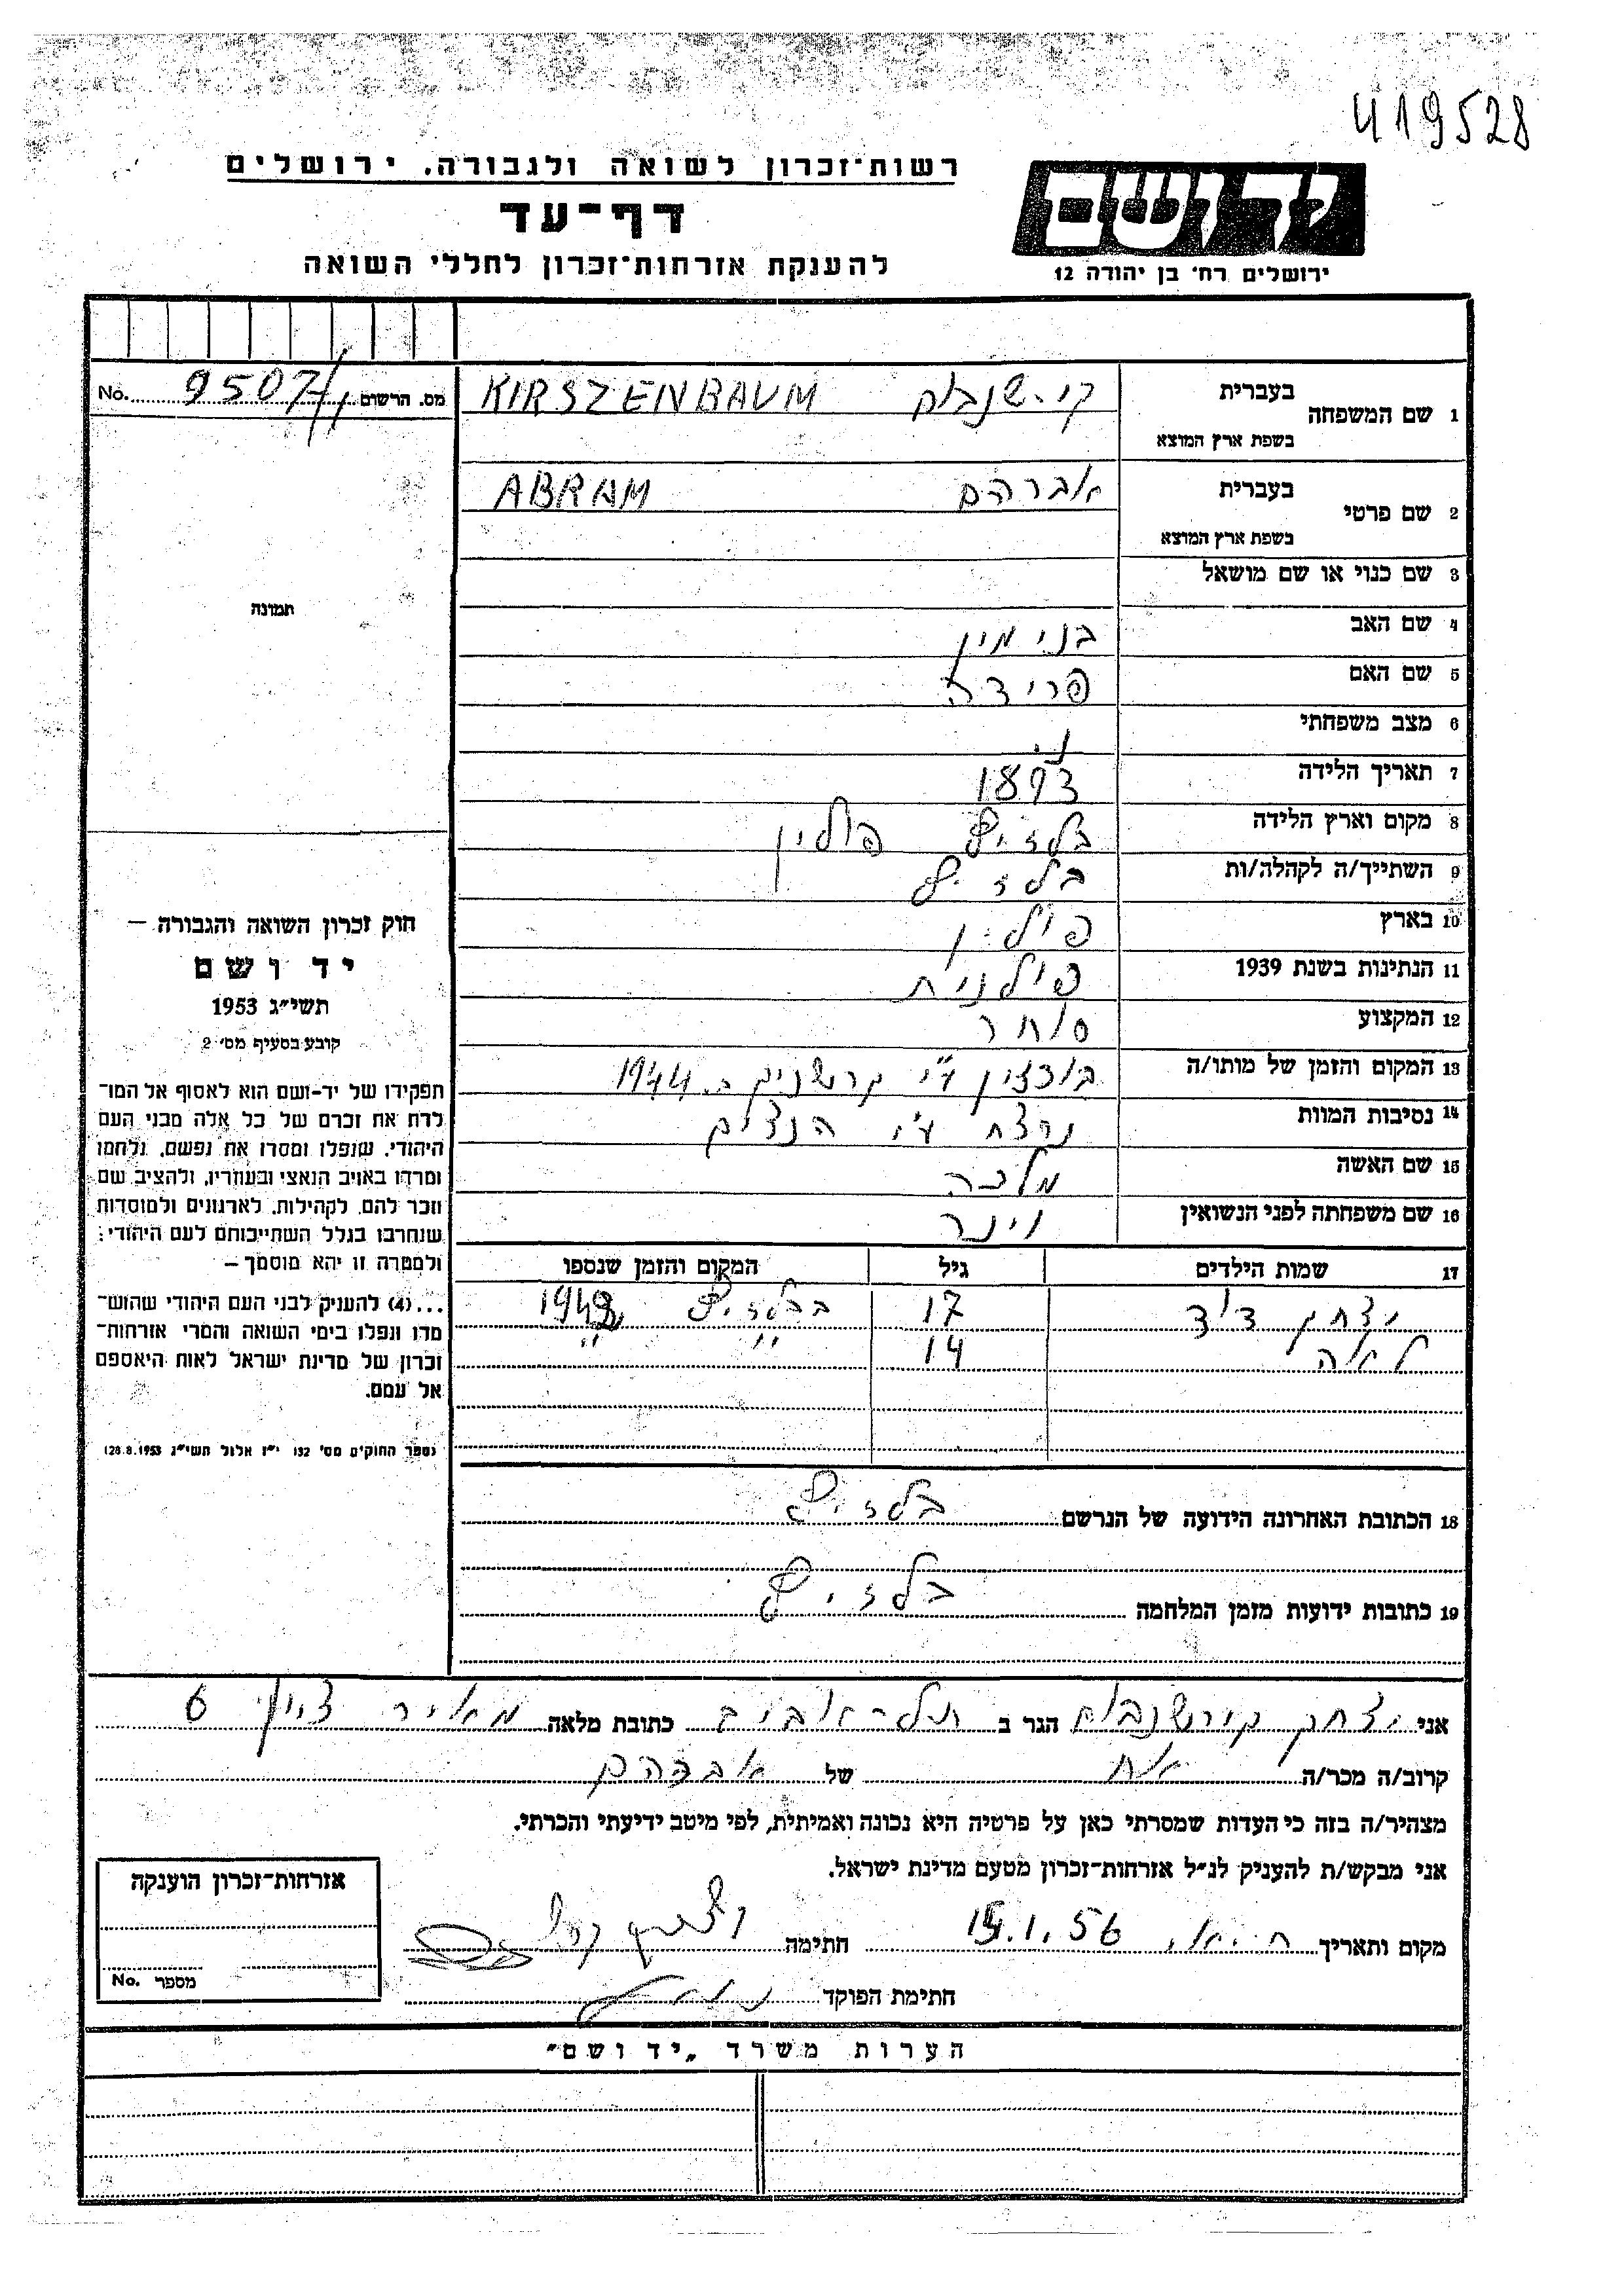 419528
רשות־זכרון לשואה ולגבורה, ירושלים
דף־עד
להענקת אזרחות־זכרון לחללי השואה
יד ושם
ירושלים רח' בן יהודה 12
מס. הרשום 9507/ No.
1 שם המשפחה בעברית קירשנבוים KIRSZENBAUM
בשפת ארץ המוצא
2 שם פרטי בעברית אברהם ABRAM
בשפת ארץ המוצא
3 שם כנוי או שם מושאל
4 שם האב בנימין
5 שם האם פרידה
6 מצב משפחתי
7 תאריך הלידה 1893
8 מקום וארץ הלידה בלזיץ פולין
9 השתייך/ה לקהלה/ות בלזיץ
10 בארץ פולין
11 הנתינות בשנת 1939 פולנית
12 המקצוע סוחר
13 המקום והזמן של מותו/ה ע"י קרשניק ב. 1944
14 נסיבות המוות נרצח ע"י
15 שם האשה מלכה
16 שם משפחתה לפני הנשואין וינר
17 שמות הילדים גיל המקום והזמן שנספו
יצחק דוד 17 בבלזיץ 1942
לאה 14 " "
18 הכתובת האחרונה הידועה של הנרשם בלזיץ
19 כתובות ידועות מזמן המלחמה בלזיץ
תמונה
חוק זכרון השואה והגבורה —
יד ושם
תשי"ג 1953
קובע בסעיף מס' 2
תפקידו של יד־ושם הוא לאסוף אל המו־
לדת את זכרם של כל אלה מבני העם
היהודי, שנפלו ומסרו את נפשם, נלחמו
ומרדו באויב הנאצי ובעוזריו, ולהציב שם
וזכר להם, לקהילות, לארגונים ולמוסדות
שנחרבו בגלל השתייכותם לעם היהודי;
ולמטרה זו יהא מוסמך —
...(4) להעניק לבני העם היהודי שהוש־
מדו ונפלו בימי השואה והמרי אזרחות־
זכרון של מדינת ישראל לאות היאספם
אל עמם.
(ספר החוקים מס' 132 י"ז אלול תשי"ג 28.8.1953)
אני יצחק קירשנבוים הגר ב תל-אביב כתובת מלאה מאיר 6
קרוב/ה מכר/ה אח של אברהם
מצהיר/ה בזה כי העדות שמסרתי כאן על פרטיה היא נכונה ואמיתית, לפי מיטב ידיעתי והכרתי.
אני מבקש/ת להעניק לנ"ל אזרחות־זכרון מטעם מדינת ישראל.
מקום ותאריך .1.56 חתימה
חתימת הפוקד
אזרחות־זכרון הוענקה
מספר No.
הערות משרד "יד ושם"